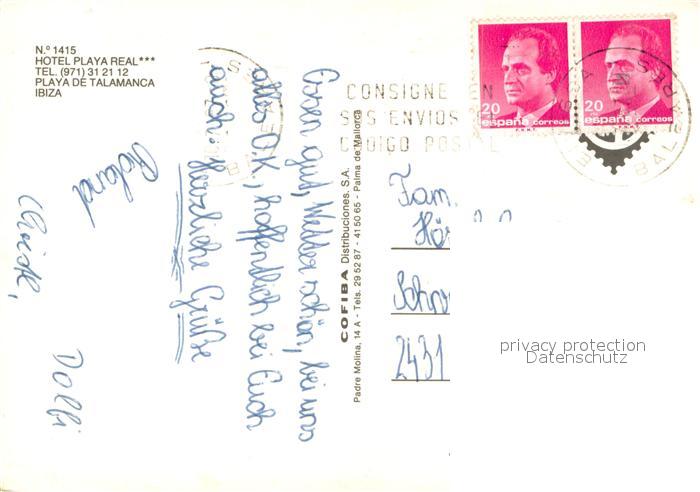 N.º 1415
HOTEL PLAYA REAL***
TEL. (971) 31 21 12
PLAYA DE TALAMANCA
IBIZA
Essen gut, Wetter schön, bei uns
alles O.K., hoffentlich bei Euch
auch.
Herzliche Grüße
Roland
Dolfi
COFIBA Distribuciones, S.A.
Padre Molina, 14 A - Tels. 29 52 87 - 41 50 65 - Palma de Mallorca
CONSIGNE EN
SUS ENVIOS
CODIGO POSTAL
BALEARES
20
españa correos
F.N.M.T.
20
españa correos
F.N.M.T.
BALEARES
Fam.
2431
privacy protection
Datenschutz